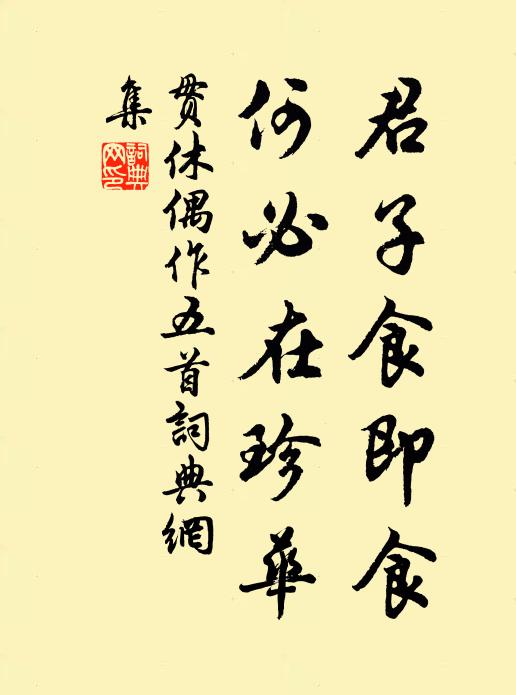 君子食即食
何必在珍華
贯休偶作五首詞典網
集
詞典網印